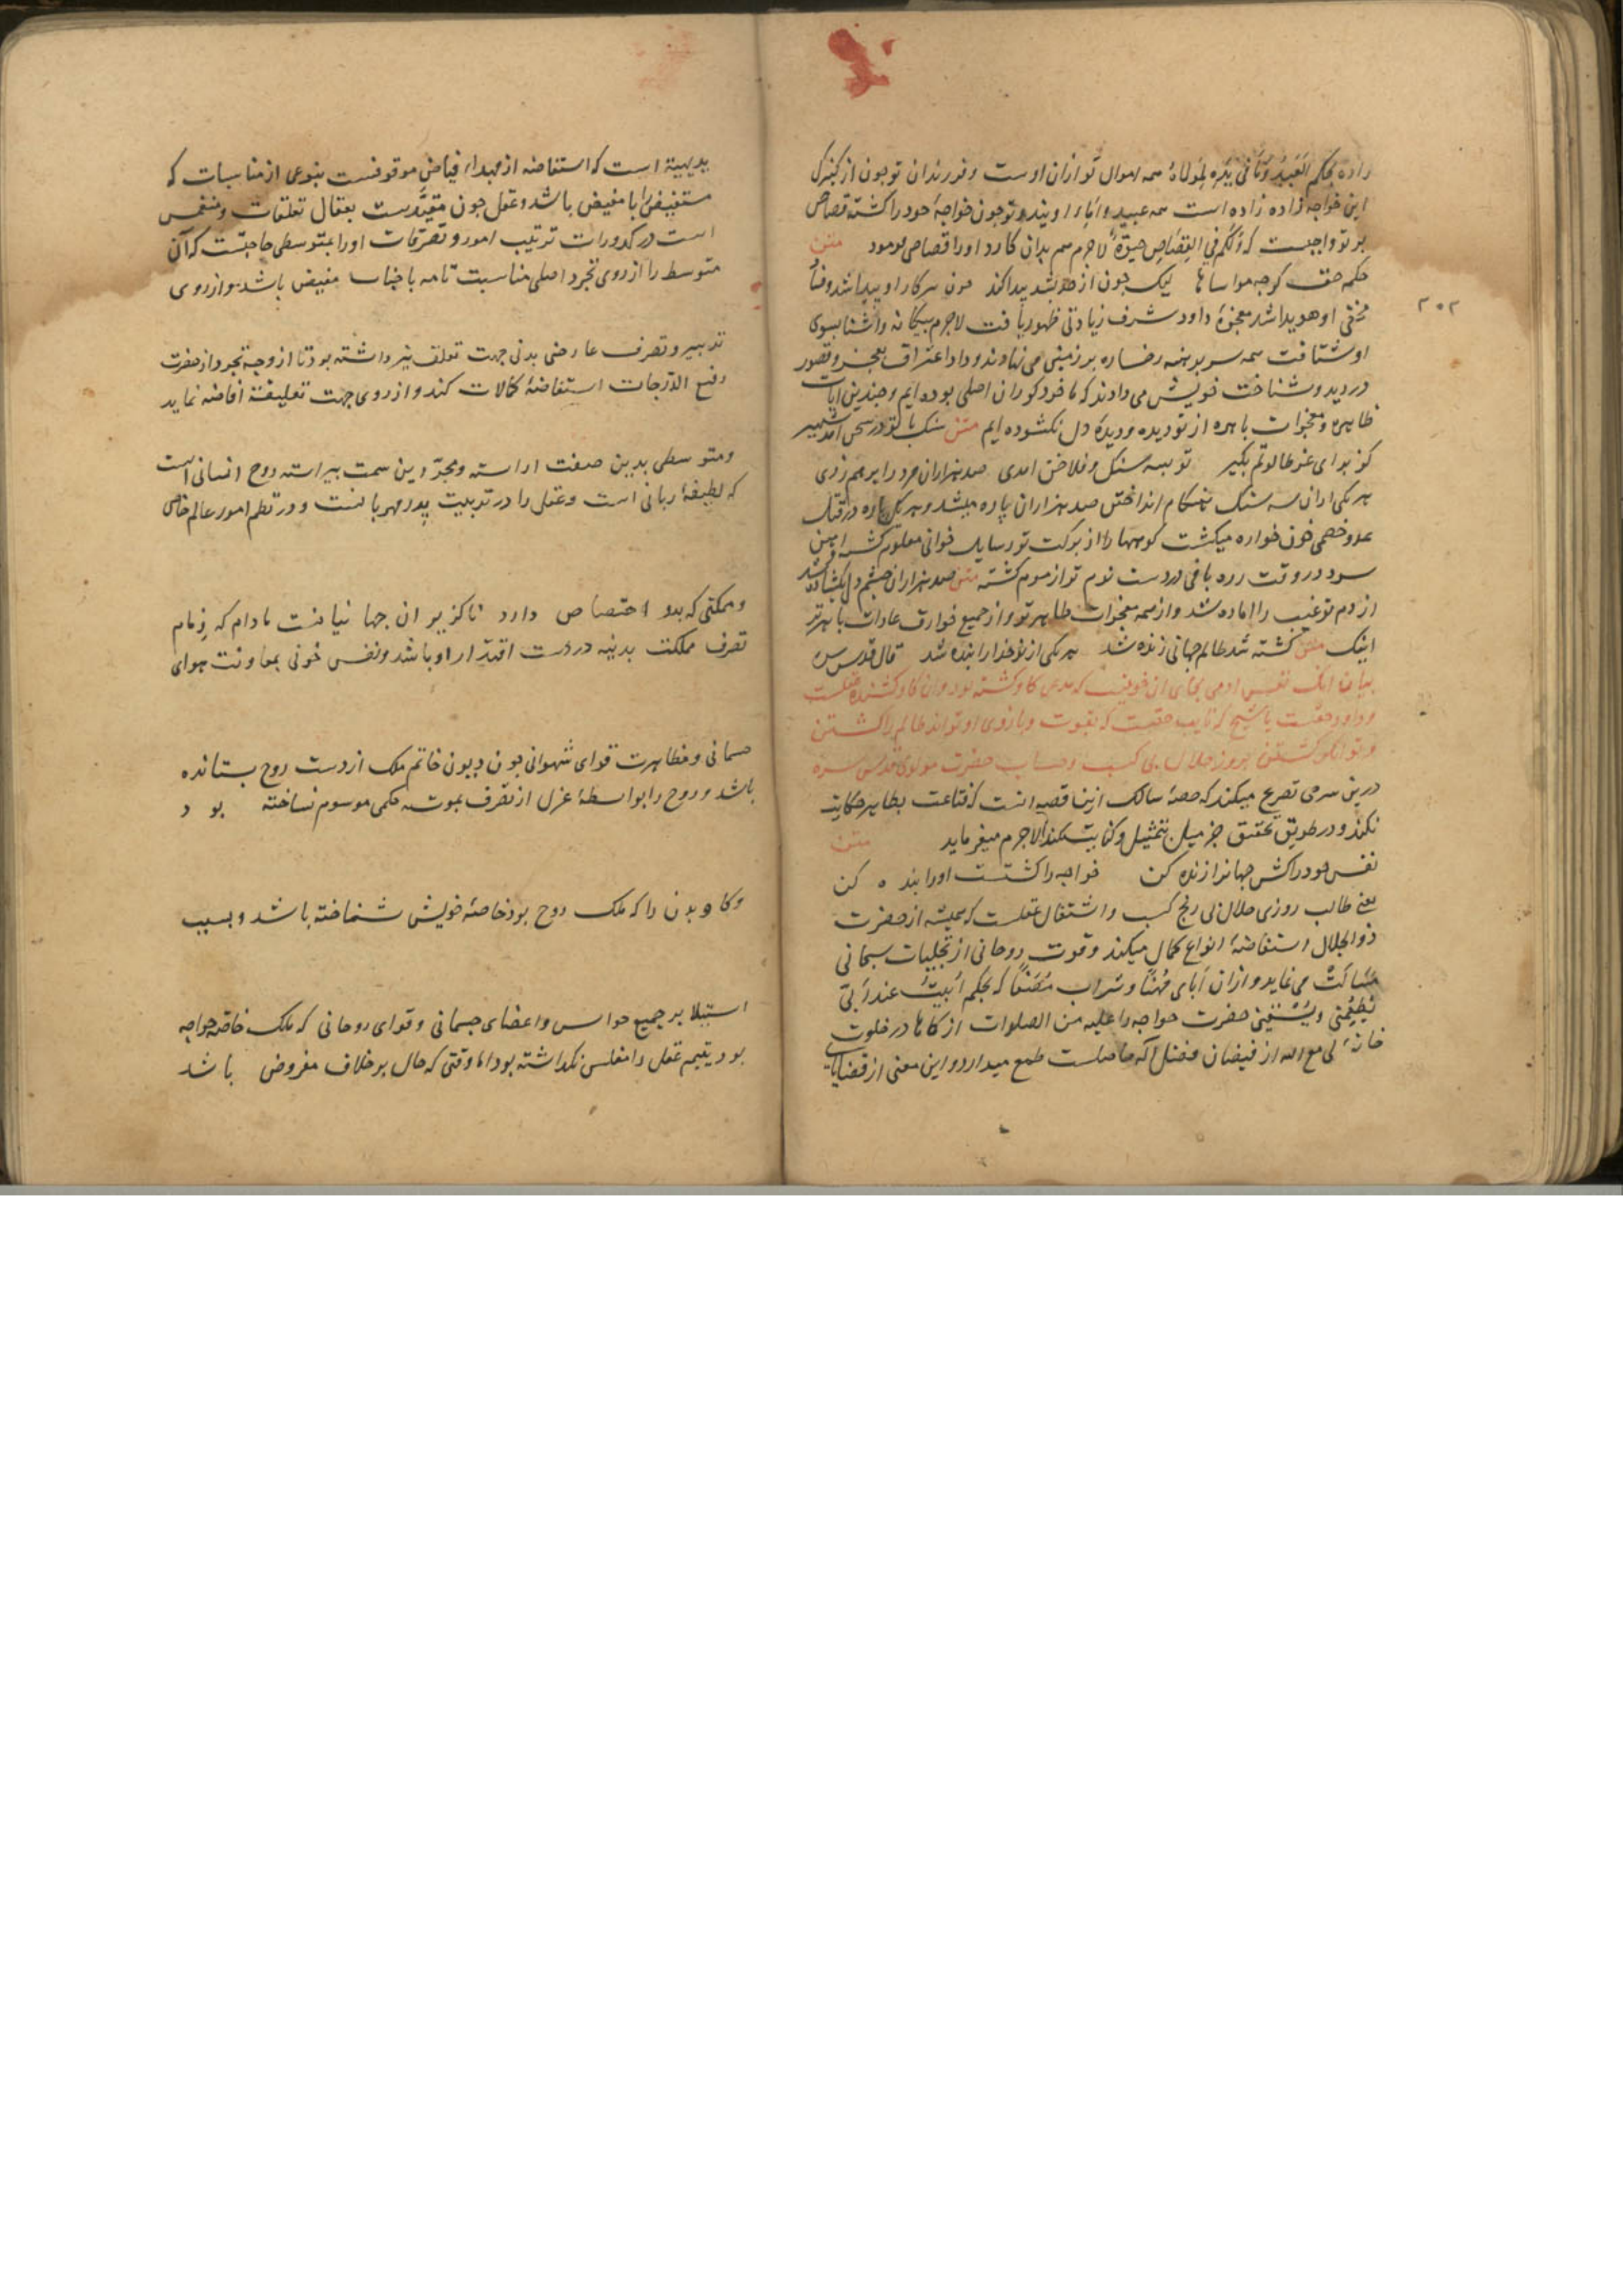 داده بحکم العبد وما فی یده لمولاه همه اموال تو ازان اوست و فرزندان تو چون از کنیزک
این خواجه زاده زاده است همه عبید و اماء اویند و تو چون خواجهٔ خود را کشتهٔ قصاص
بر تو واجبست که ولکم فی القصاص حیوة لاجرم هم بدان کارد او را قصاص فرمود متن
حلم حق گرچه مواساها لیک چون از حد بشد پیدا کند چون سر کار او پیدا شد و
مخفی او هویدا شد معجزهٔ داود شرف زیادتی ظهور یافت لاجرم بیگانه و آشنا بسوی
او شتافت همه سر برهنه رخساره بر زمین می نهادند و داد اعتراف بعجز و قصور
در دید و شناخت خویش می دادند که ما خود کوران اصلی بوده ایم و چندین آیات
ظاهره و معجزات باهره از تو دیده و دیدهٔ دل نکشوده ایم متن سنک با تو در سخن آمد شهیر
کز برای غزو طالوتم بگیر تو بسه سنک و فلاخن آمدی صد هزاران مرد را برهم زدی
هر یکی ازان سه سنک بهنکام انداختن صد هزاران پاره میشد و هر یک پاره در قتل
عدو خصمی خون خواره میکشت کوهها را از برکت تو رسایل خوانی معلوم کشت آهن
در وقت زره بافی در دست تو موم کشته متن صد هزاران چشم دل بکشاده شد
از دم تو غیب را آماده شد و از همه معجزات ظاهر تو و از جمیع خوارق عادات باهرتر
اینک متن کشته شد ظالم جهانی زنده شد هر یکی از نو خدا را بنده شد قال قدس سره
بیان آنک نفس آدمی بجای آن خونیست که مدعی کاو کشته بود و آن کاو کشنده عقلست
و داود حقست یا شیخ که نایب حقست که بقوت و یاری او تواند ظالم را کشتن
و توانکر کشتن بروزی حلال بی کسب و حساب حضرت مولوی قدس سره
درین سرخی تصریح میکند که حصهٔ سالک ازین قصه آنست که قناعت بظاهر حکایت
نکند و در طریق تحقیق جز میل بتمثیل و کنایت نکند لاجرم میفرماید متن
نفس خود را کش جهانرا زنده کن خواجه را کشتست او را بنده کن
یعنی طالب روزی حلال بی رنج کسب و اشتغال عقلست که همیشه از حضرت
ذو الجلال استفاضهٔ انواع کمال میکند و قوت روحانی از تجلیات سبحانی
مسالت می نماید و ازان مهنا و شراب که بحکم ابیت عند ربی
یطعمنی و یسقینی حضرت خواجه را علیه من الصلوات ازکاها در خلوت
خانهٔ لی مع الله از فیضان فضل اله حاصلست طمع میدارد و این معنی از قضایای
۲۰۲
بدیهیه است که استفاضه از مبداء فیاض موقوفست بنوعی از مناسبات که
مستفیض را با مفیض باشد و عقل چون مقیدست بعقال تعلقات و منغمس
است در کدورات ترتیب امور و تصرفات او را بمتوسطی حاجتست که آن
متوسط را از روی تجرد اصلی مناسبت تامه با جناب مفیض باشد و از روی
تدبیر و تصرف عارضی بدنی جهت تعلق نیز داشته بود تا از وجه تجرد از حضرت
رفیع الدرجات استفاضهٔ کمالات کند و از روی جهت تعلیقیة افاضه نماید
و متوسطی بدین صفت اراسته و مجردی بدین سمت پیراسته روح انسانی است
که لطیفهٔ ربانی است و عقل را در تربیت پدر مهربانست و در نظم امور عالم خاص
و مملکتی که بدو اختصاص دارد ناکزیر ان جهانبانست مادام که زمام
تصرف مملکت بدنیه در دست اقتدار او باشد و نفس خونی بمعاونت هوای
جسمانی و مظاهرت قوای شهوانی چون دیون خاتم ملک از دست روح بستانده
باشد و روح را بواسطهٔ عزل از تصرف بموت حکمی موسوم نساخته بود
و کاو بدن را که ملک روح بود خاصهٔ خویش شناخته باشد و بسبب
استیلا بر جمیع حواس و اعضای جسمانی و قوای روحانی که ملک خاصه خواجه
بود یتیم عقل را مفلس نکداشته بود اما وقتی که حال بر خلاف مفروض باشد